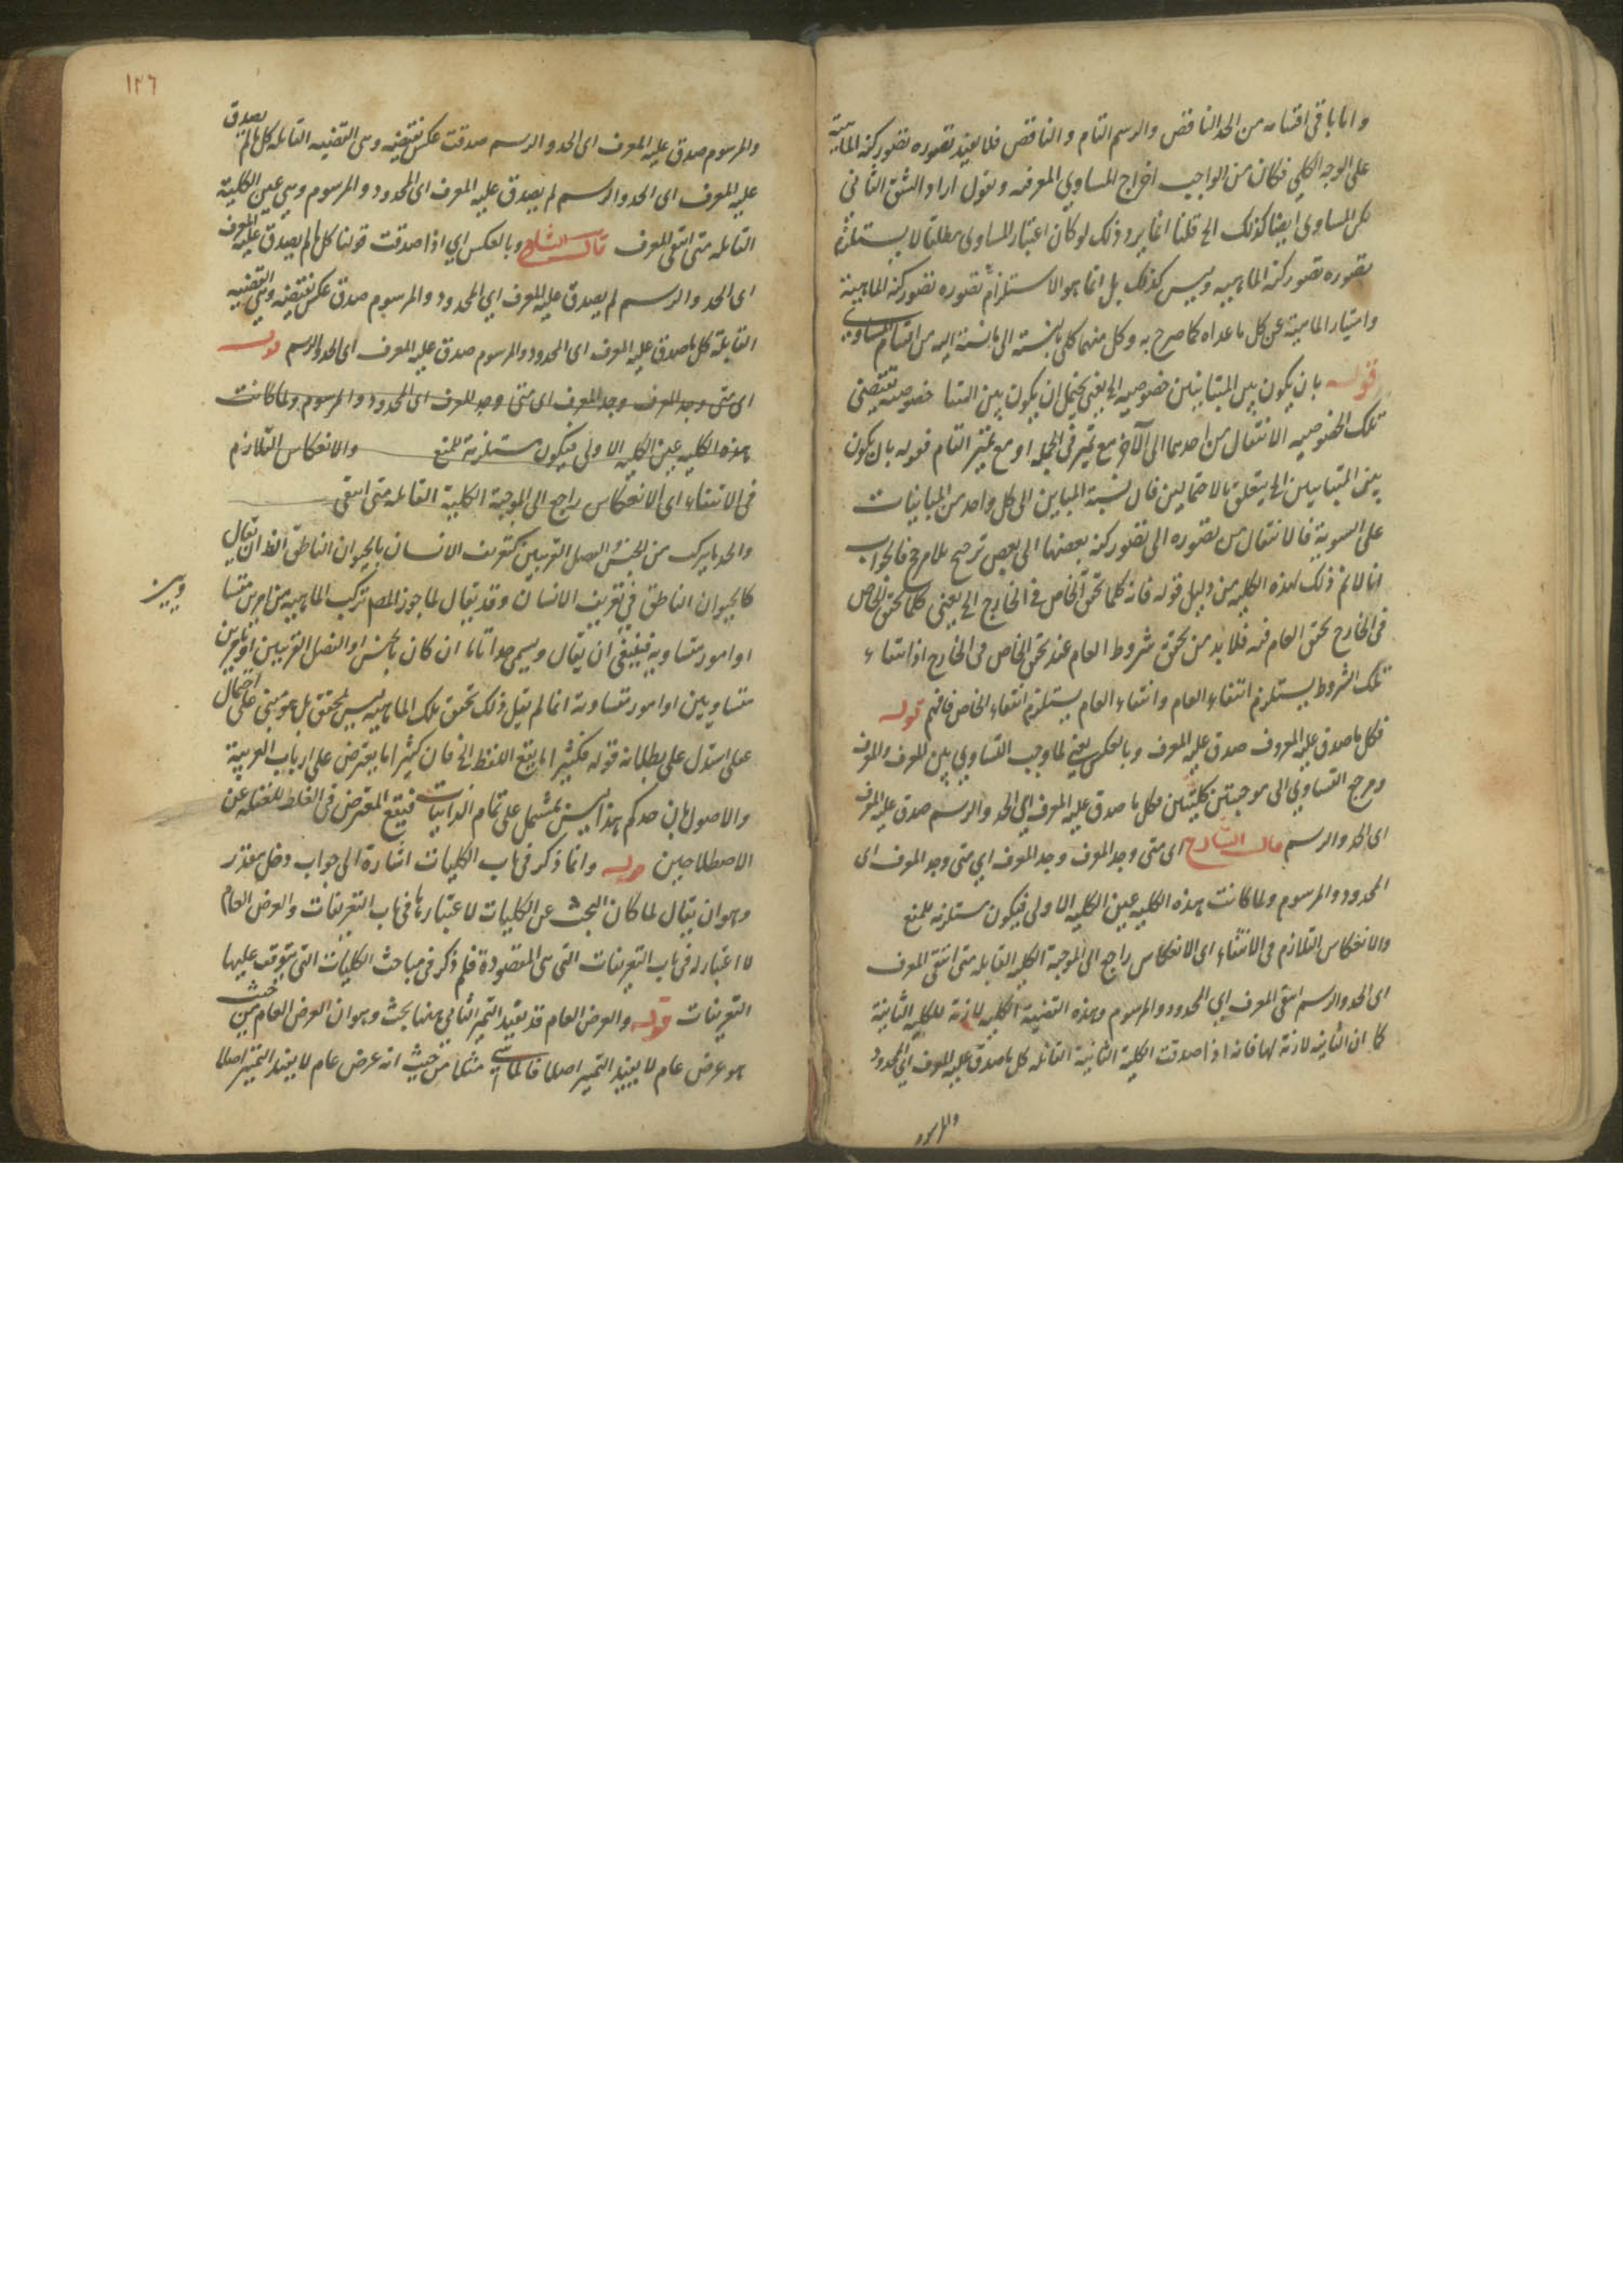 واما باقي اقسامه من الحد الناقص والرسم التام والناقص فلا يفيد تصوره تصور كنه الماهية
على الوجه الكلي فكان من الواجب اخراج المساوي المعرفه ونقول اراد الشق الثاني
لكن المساوي ايضا كذلك الخ قلنا انما يرد ذلك لو كان اعتبار المساوي مطلقا لا يستلزم
تصوره تصور كنه الماهيه وليس كذلك بل انما هو الاستلزام تصوره تصور كنه الماهية
وامتياز الماهية عن كل ما عداه كما صرح به وكل منهما كلي بالنسبة الى بالنسبة اليه من اقسام المساوي
قوله بان يكون بين المتباينين خصوصيه الخ يعني يحتمل ان يكون بين المتبا خصوصيه تقتضي
تلك الخصوصيه الانتقال من احدهما الى الاخر مع تميز في الجمله او مع تميز التام فقوله بان يكون
بين المتباينين الخ يتعلق بالاحتمالين فان نسبة المباين الى كل واحد من المباينات
على السوية فالانتقال من تصوره الى تصور كنه بعضها الى بعض ترجيح بلا مرجح فالجواب
انا لا نم ذلك لهذه الكليه من دليل قوله فانه كلما تحقق الخاص في الخارج الخ يعني كلما تحقق الخاص
في الخارج تحقق العام فيه فلا بد من تحقق شروط العام عند تحقق الخاص في الخارج اذ انتفاء
تلك الشروط يستلزم انتفاء العام وانتفاء العام يستلزم انتفاء الخاص فافهم قوله
فكل ما صدق عليه المعروف صدق عليه المعرف وبالعكس يعني لما وجب التساوي بين المعرف والمعرف
ومرجع التساوي الى موجبتين كليتين فكل ما صدق عليه المعرف اي الحد والرسم صدق عليه المعرف
اي الحد والرسم قال الشارح اي متى وجد المعرف وجد المعرف اي متى وجد المعرف اى
المحدود والمرسوم ولما كانت هذه الكليه عين الكليه الاولى فيكون مستلزمه للمنع
والانعكاس التلازم في الانتفاء اى الانعكاس راجع الى الموجبة الكليه القايله متى انتفى المعرف
اى الحد والرسم انتفى المعرف اي المحدود والمرسوم وهذه القضية الكليه لازمة للكليه الثانية
كما ان الثانيه لازمة لها فانه اذا صدقت الكلية الثانية القائله كل ما صدق عليه المعرف اي المحدود
والمرسوم
١٢٦
والمرسوم صدق عليه المعرف اى الحد والرسم صدقت عكس نقيضه وهى القضيه القايله كل ما لم يصدق
عليه المعرف اى الحد والرسم لم يصدق عليه المعرف اى المحدود والمرسوم وهي عين الكلية
القايله متى انتفى المعرف قال الشارح وبالعكس اي اذا صدقت قولنا كل ما لم يصدق عليه المعرف
اى الحد والرسم لم يصدق عليه المعرف اي المحدود والمرسوم صدق عكس نقيضه وهي القضيه
القايلة كل ما صدق عليه المعرف اى المحدود والمرسوم صدق عليه المعرف اى الحد والرسم قوله
اى متى وجد المعرف وجد المعرف اى متى وجد المعرف اى المحدود والمرسوم ولما كانت
هذه الكليه عين الكليه الاولى فيكون مستلزمة للمنع والانعكاس التلازم
في الانتفاء اى الانعكاس راجع الى الموجبة الكلية القايله متى انتفى
والحد ما يتركب من الجنس والفصل القريبين كتعريف الانسان بالحيوان الناطق الظ ان يقال
كالحيوان الناطق في تعريف الانسان وقد يقال لما جوز المصـ تركب الماهيه من امرين متسا
ويين
او امور متساويه فينبغي ان يقال ويسمى حدا تاما ان كان بالجنس او الفصل القريبين او بامرين
متساويين او امور متساوية انما لم يقل ذلك تحقق تلك الماهيه ليس بمحقق بل هو مبنى على احتمال
على استدل على بطلانه قوله فكثيرا ما يقع الغلط الخ فان كثيرا ما يعترض على ارباب العربية
والاصول بان حدكم هذا ليس بمشتمل على تمام الذاتيات فيقع المعترض في الغلط للغفله عن
الاصطلاحين قوله وانما ذكر في باب الكليات اشارة الى جواب دخل مقدر
وهو ان يقال لما كان البحث عن الكليات لاعتبارها في باب التعريفات والعرض العام
لا اعتبار له في باب التعريفات التى هى المقصودة فلم ذكر في مباحث الكليات التى يتوقف عليها
التعريفات قوله والعرض العام قد يفيد التميز الثاني ههنا بحث وهو ان العرض العام من حيث
هو عرض عام لا يفيد التميز اصلا فالماشي مثلا من حيث انه عرض عام لا يفيد التميز اصلا